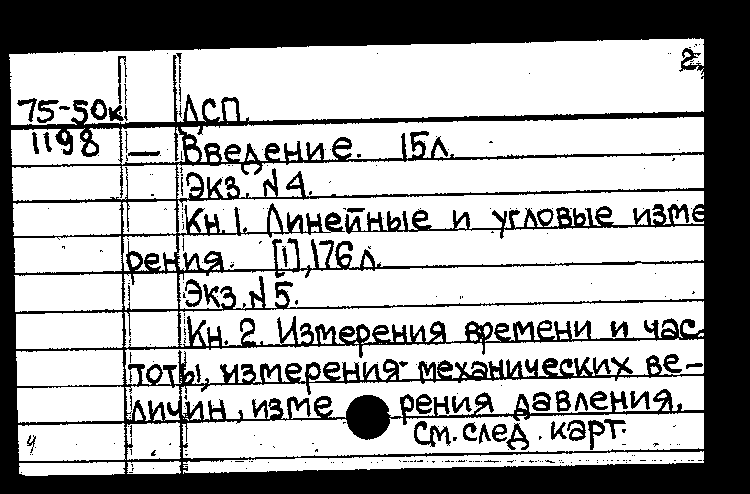 2.
75-50к ДСП.
1198 — Введение. 15л.
Экз. N 4.
Кн. 1. Линейные и угловые изме
рения. [1], 176 л.
Экз. N 5.
Кн. 2. Измерения времени и час-
тоты, измерения механических ве-
личин, изме рения давления.
см. след. карт.
4